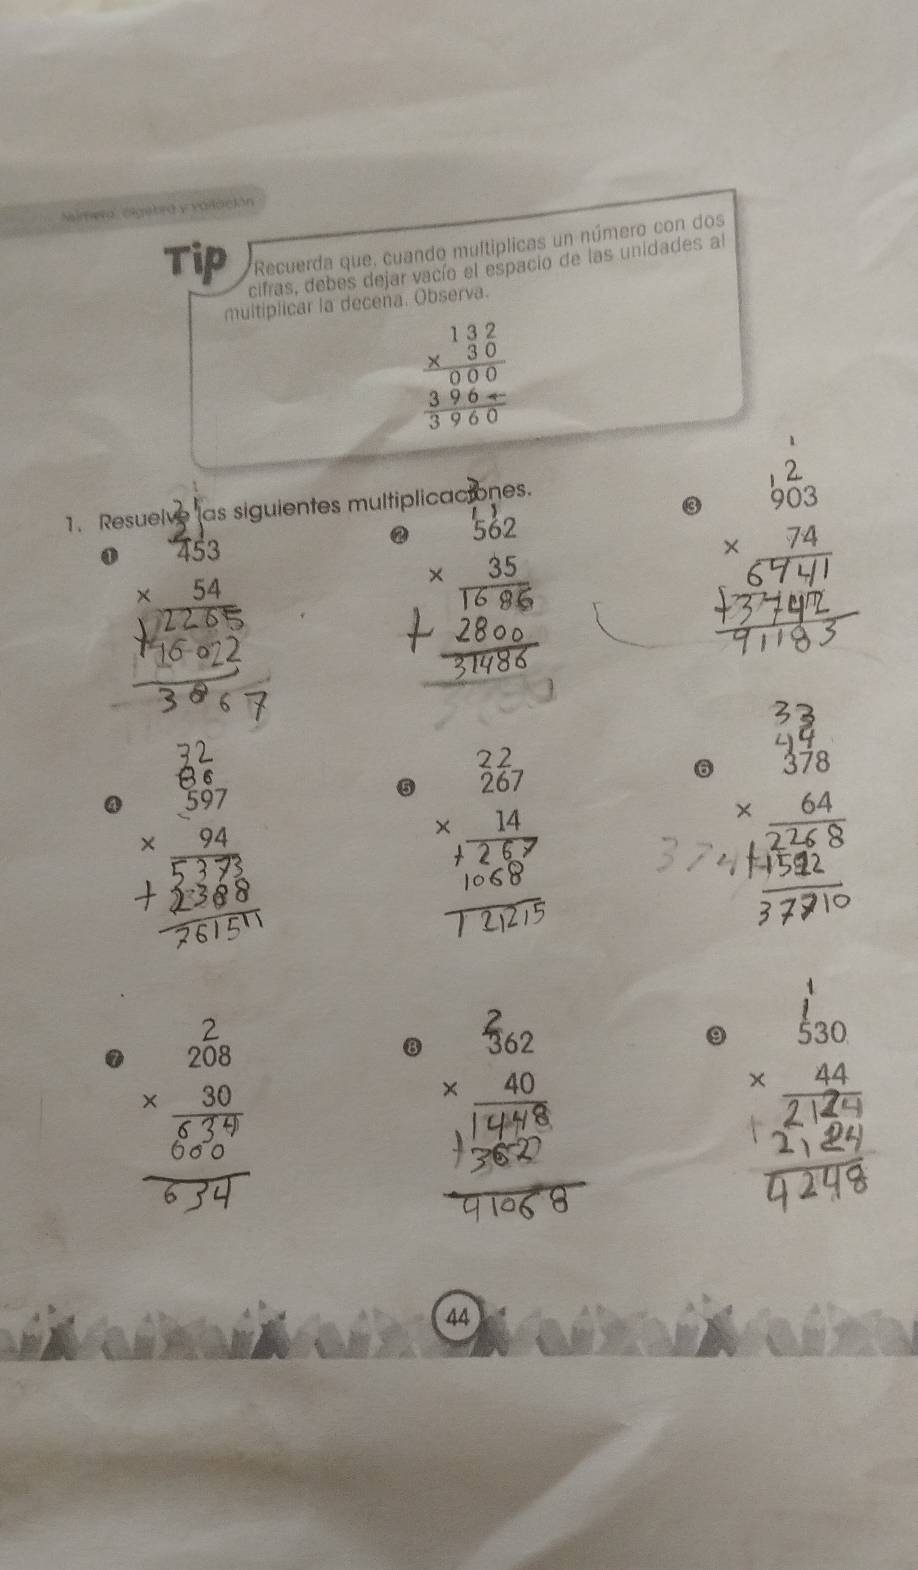 Número, álgebra y variación
Tip
Recuerda que, cuando multiplicas un número con dos
cifras, debes dejar vacío el espacio de las unidades al
multiplicar la decena. Observa.
132
× 30
000
396←
3960
1. Resuelve las siguientes multiplicaciones.
1
2 1
453
× 54
+ 2265
16022
3867
2
1 1
562
× 35
1686
+ 2800
31486
3
1
1 2
903
× 74
6941
+3742
91183
4
32
86
597
× 94
5373
+ 2388
761511
5
22
267
× 14
+ 267
1068
121215
6
33
44
378
× 64
2268
374 +1512
37710
7
2
208
× 30
634
600
634
8
2
362
× 40
1448
+362
41068
9
1
1
530
× 44
2124
+ 2124
4248
44